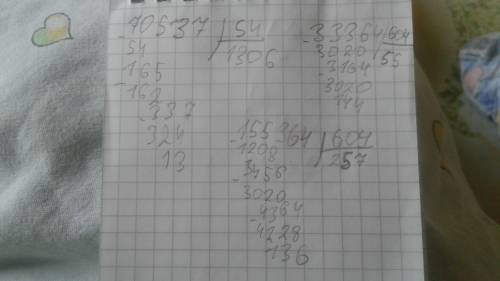 70537 54
54 1306
165
162
337
324
13
33364 604
3020 55
3164
3020
144
155364 604
1208 257
3456
3020
4364
4228
136